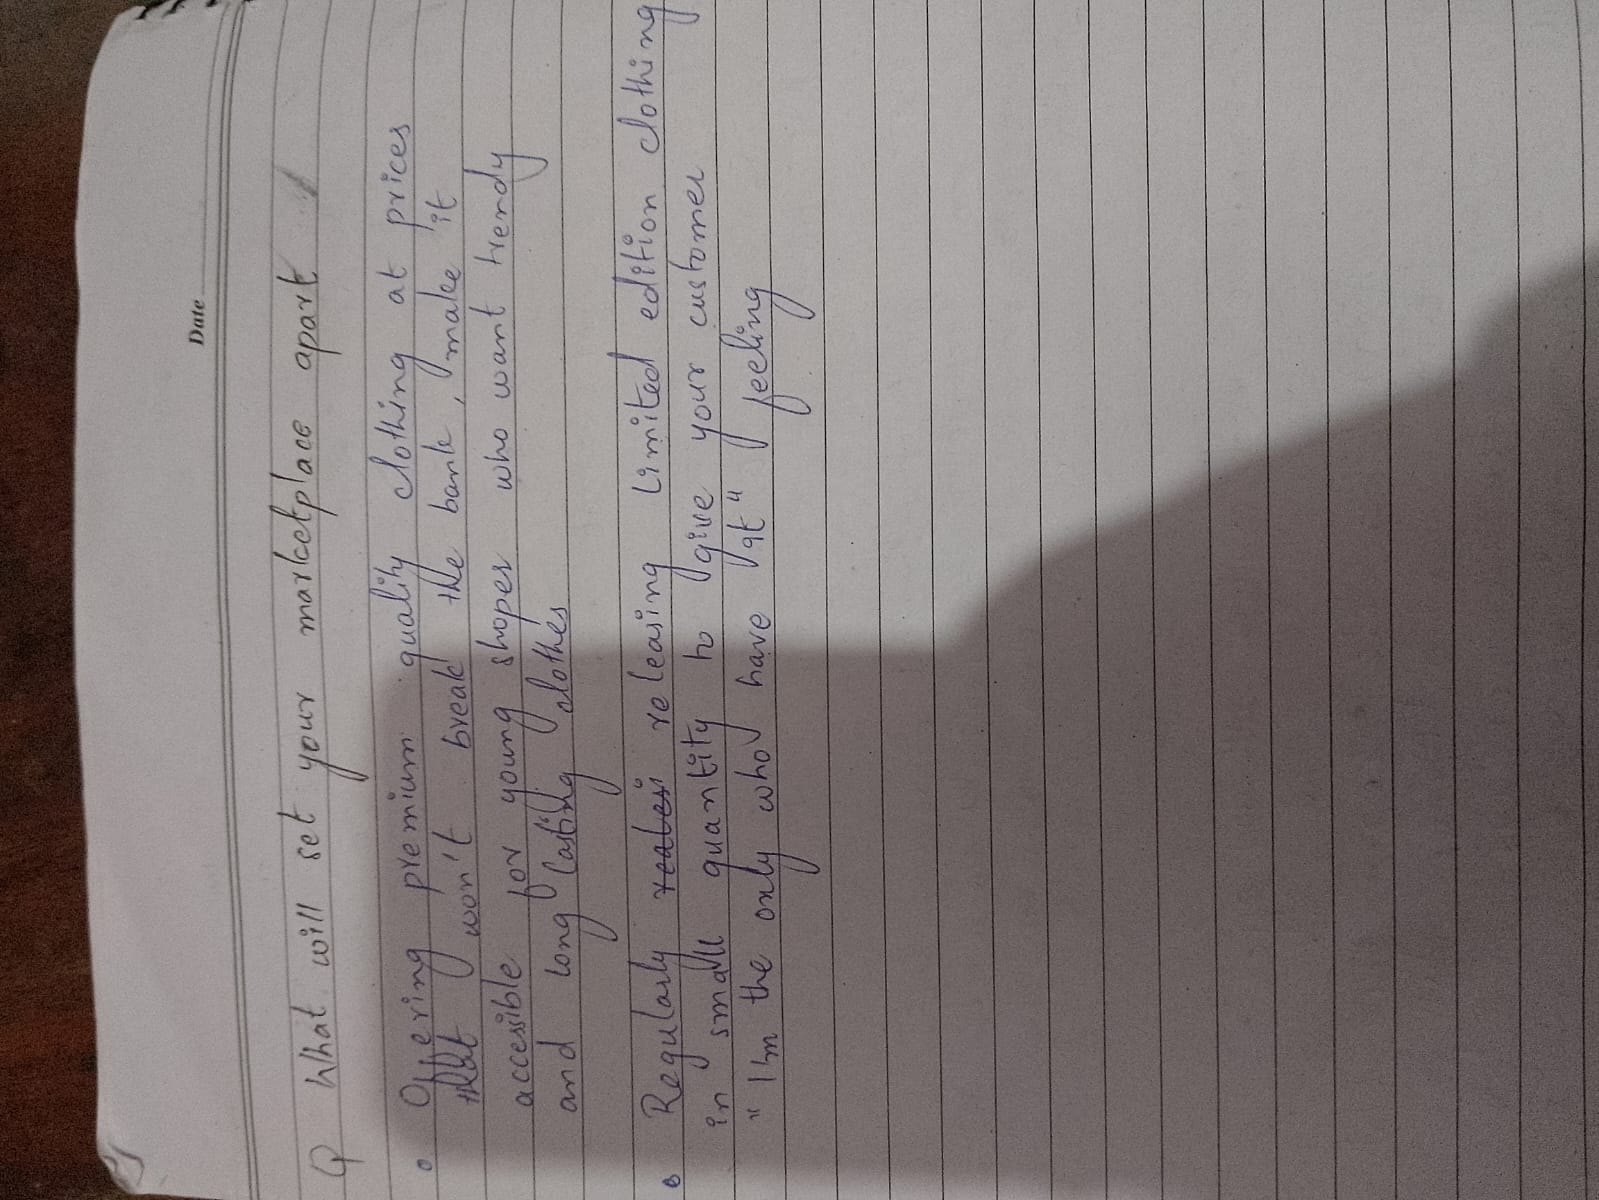 Date
Q What will set your marketplace apart
• Offering premium quality clothing at prices
that won't break the bank, make it
accessible for young shopes who want trendy
and long lasting clothes
• Regularly releasing limited edition clothing
in small quantity to give your customer
" Im the only who have it" feeling